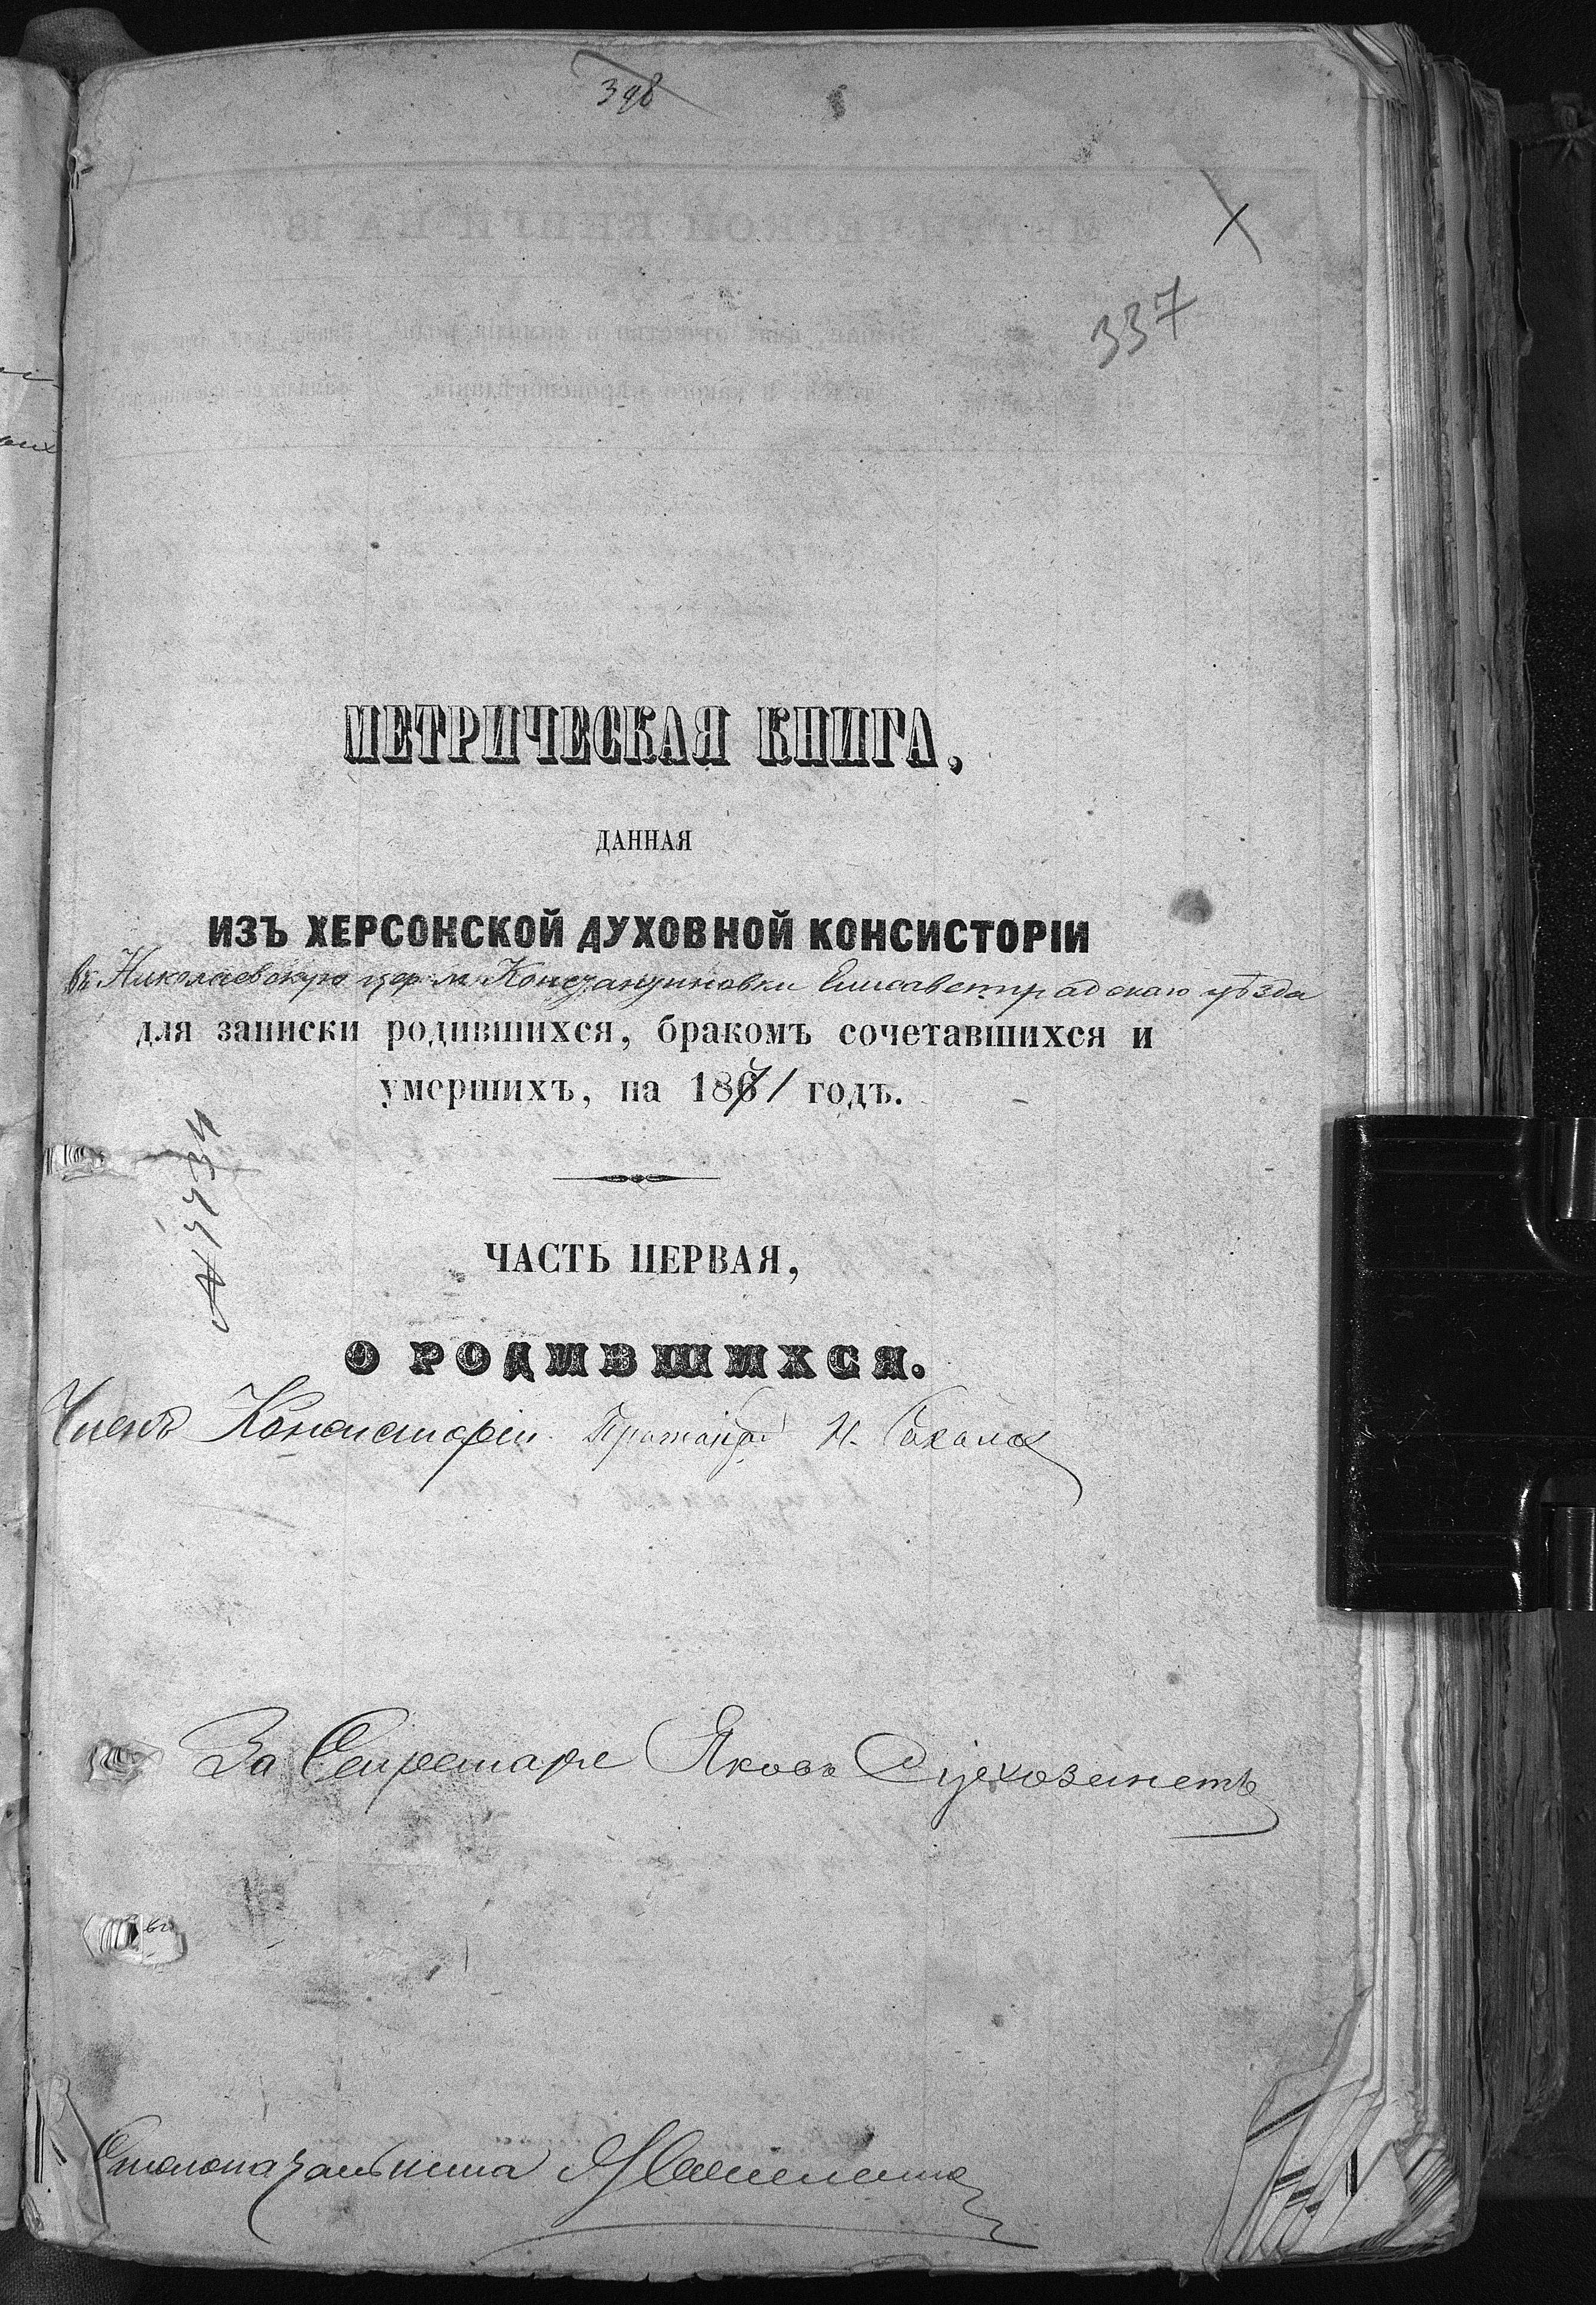 398
337
МЕТРИЧЕСКАЯ КНИГА,
ДАННАЯ
ИЗЪ ХЕРСОНСКОЙ ДУХОВНОЙ КОНСИСТОРІИ
въ Николаевскую цер м. Константиновки Елисаветградскаго уѣзда
для записки родившихся, бракомъ сочетавшихся и
умершихъ, на 1871 годъ.
ЧАСТЬ ПЕРВАЯ,
О РОДИВШИХСЯ.
Членъ Консисторіи Н.
За Секретаря Яковъ
Столоначальника